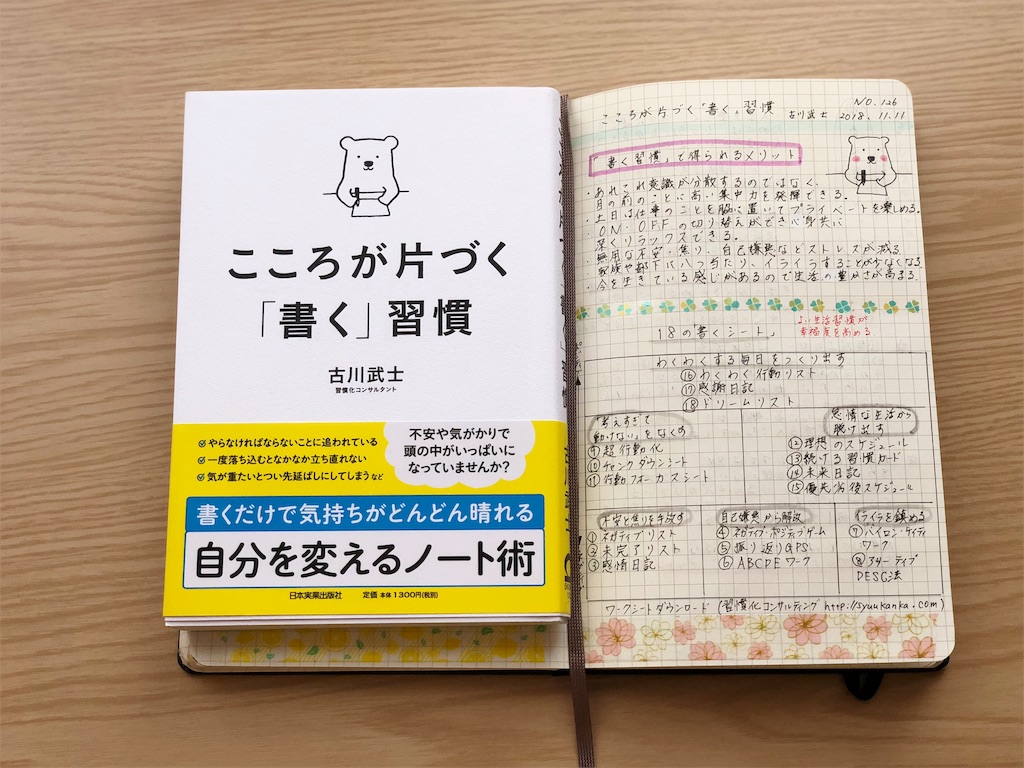 こころが片づく
「書く」習慣
古川武士
習慣化コンサルタント
やらなければならないことに追われている
一度落ち込むとなかなか立ち直れない
気が重たいとつい先延ばしにしてしまう など
不安や気がかりで
頭の中がいっぱいに
なっていませんか?
書くだけで気持ちがどんどん晴れる
自分を変えるノート術
日本実業出版社 定価 本体1300円(税別)
NO.126
こころが片づく「書く」習慣 古川武士 2018.11.11
「書く習慣」で得られるメリット
・あれこれ意識が分散するのではなく、
目の前のことに高い集中力を発揮できる。
・土日は仕事のことを脇に置いてプライベートを楽しめる。
・ON・OFFの切り替えができ心身共に
深くリラックスできる。
・無用な不安・焦り・自己嫌悪などストレスが減る
・家族や部下に八つ当たり、イライラすることが少なくなる
・今を生きている感じがあるので生活の豊かさが高まる。
18の「書くシート」
よい生活習慣が
幸福度を高める
わくわくする毎日をつくり出す
⑯わくわく行動リスト
⑰感謝日記
⑱ドリームリスト
「考えすぎて
動けない」をなくす
⑨超行動化
⑩チャンクダウンシート
⑪行動フォーカスシート
怠惰な生活から
脱け出す
⑫理想のスケジュール
⑬続ける習慣カード
⑭未来日記
⑮優先劣後スケジュール
不安と焦りを手放す
①ネガティブリスト
②未完了リスト
③感情日記
自己嫌悪から解放
④ネガティブ・ポジティブゲーム
⑤振り返りGPS
⑥ABCDEワーク
イライラを鎮める
⑦バイロン・ケイティ
ワーク
⑧アサーティブ
DESC法
ワークシートダウンロード (習慣化コンサルティング http://syuukanka.com)